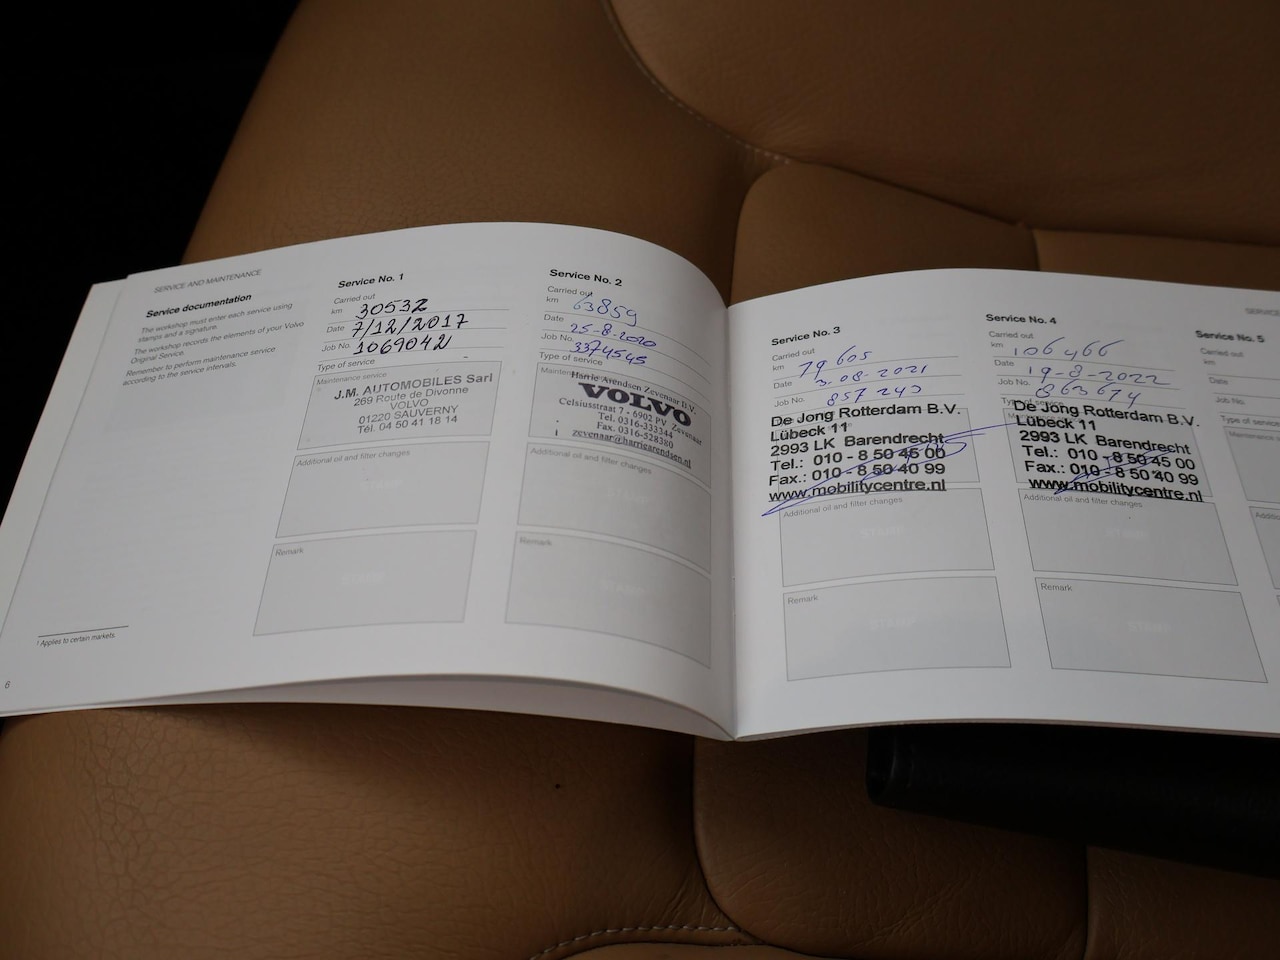 SERVICE AND MAINTENANCE
Service documentation
The workshop must enter each service using
stamps and a signature.
The workshop records the elements of your Volvo
Original Service.
Remember to perform maintenance service
according to the service intervals.
1 Applies to certain markets.
6
Service No. 1
Carried out
km 30532
Date 7/12/2017
Job No. 1069042
Type of service
Maintenance service
J.M. AUTOMOBILES Sarl
269 Route de Divonne
VOLVO
01220 SAUVERNY
Tél. 04 50 41 18 14
Additional oil and filter changes
STAMP
Remark
STAMP
Service No. 2
Carried out
km 63859
Date 25-8-2020
Job No. 3374545
Type of service
Harrie Arendsen Zevenaar B.V.
VOLVO
Celsiusstraat 7 - 6902 PV Zevenaar
Tel. 0316-333344
Fax. 0316-528380
zevenaar@harriearendsen.nl
Additional oil and filter changes
STAMP
Remark
STAMP
Service No. 3
Carried out
km 79605
Date 3.08-2021
Job No. 857243
De Jong Rotterdam B.V.
Lübeck 11
2993 LK Barendrecht
Tel.: 010 - 8 50 45 00
Fax.: 010 - 8 50 40 99
www.mobilitycentre.nl
Additional oil and filter changes
STAMP
Remark
STAMP
Service No. 4
Carried out
km 106466
Date 19-8-2022
Job No. 863674
Type of service
De Jong Rotterdam B.V.
Lübeck 11
2993 LK Barendrecht
Tel.: 010 - 8 50 45 00
Fax.: 010 - 8 50 40 99
www.mobilitycentre.nl
Additional oil and filter changes
STAMP
Remark
STAMP
SERVICE
Service No. 5
Carried out
km
Date
Job No.
Type of service